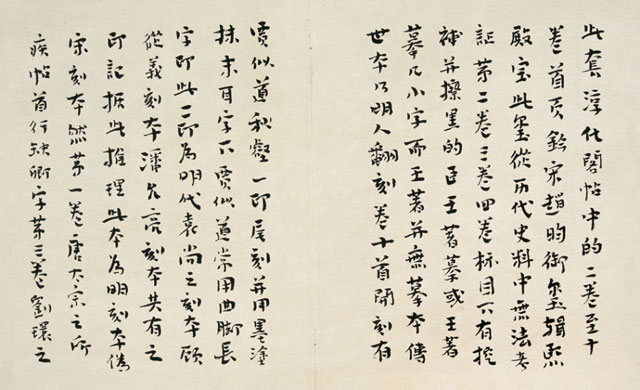 此套淳化閣帖中的二卷至十
卷首页鈐宋趙昀御玺緝熙
殿宝此玺從历代史料中無法考
証第二卷三卷四卷标目下有挖
補并擦墨的臣王著摹或王著
摹几小字而王著并無摹本傳
世本乃明人翻刻卷十首開刻有
賈似道秋壑一印尾刻并用墨塗
抹末耳字下賈似道常用曲脚長
字印此二印為明代袁尚之刻本顾
從義刻本潘允亮刻本共有之
印記据此推理此本為明刻本偽
宋刻本然第一卷唐太宗之所
疾帖首行缺卿字第三卷劉環之